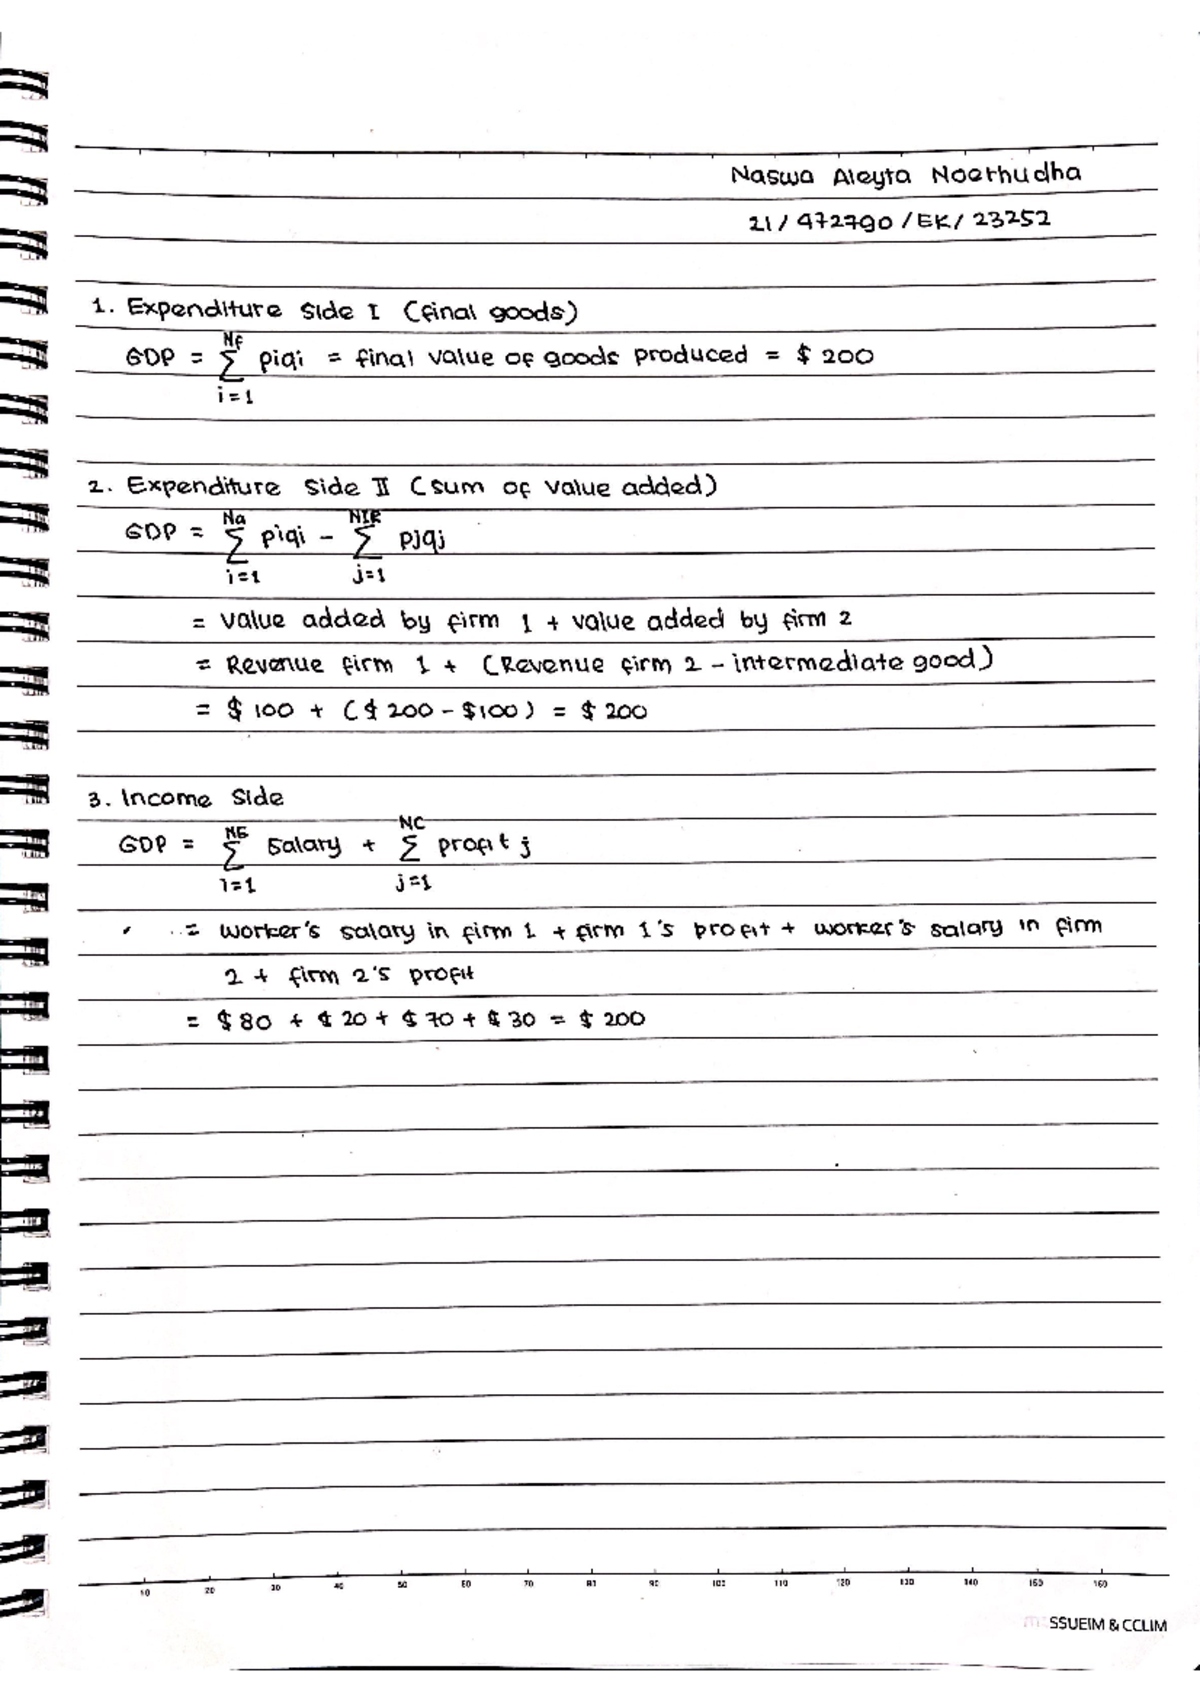 Naswa Aleyta Noerhudha
21/472790/EK/23252
1. Expenditure Side I (final goods)
NF
GDP = Σ piqi = final value of goods produced = $ 200
i=1
2. Expenditure Side II (sum of value added)
Na NIR
GDP = Σ piqi - Σ pjqj
i=1 j=1
= Value added by firm 1 + value added by firm 2
= Revenue firm 1 + (Revenue firm 2 - intermediate good)
= $ 100 + ($ 200 - $100) = $ 200
3. Income Side
NE NC
GDP = Σ Salary + Σ profit j
i=1 j=1
= worker's salary in firm 1 + firm 1's profit + worker's salary in firm
2 + firm 2's profit
= $ 80 + $ 20 + $ 70 + $ 30 = $ 200
10 20 30 40 50 60 70 80 90 100 110 120 130 140 150 160
SSUEIM & CCLIM